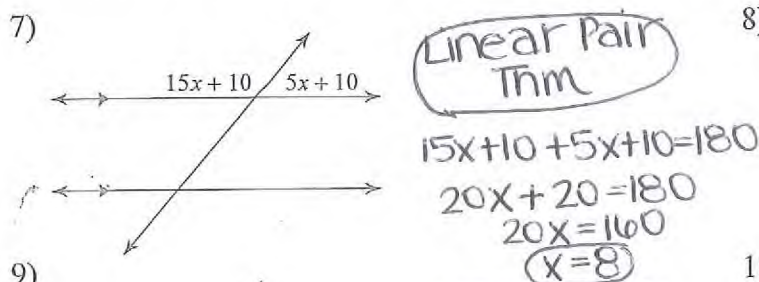 7)
15x + 10 5x + 10
Linear Pair
Thm
15x+10 +5x+10=180
20x + 20 =180
20x = 160
x = 8
8)
9)
1